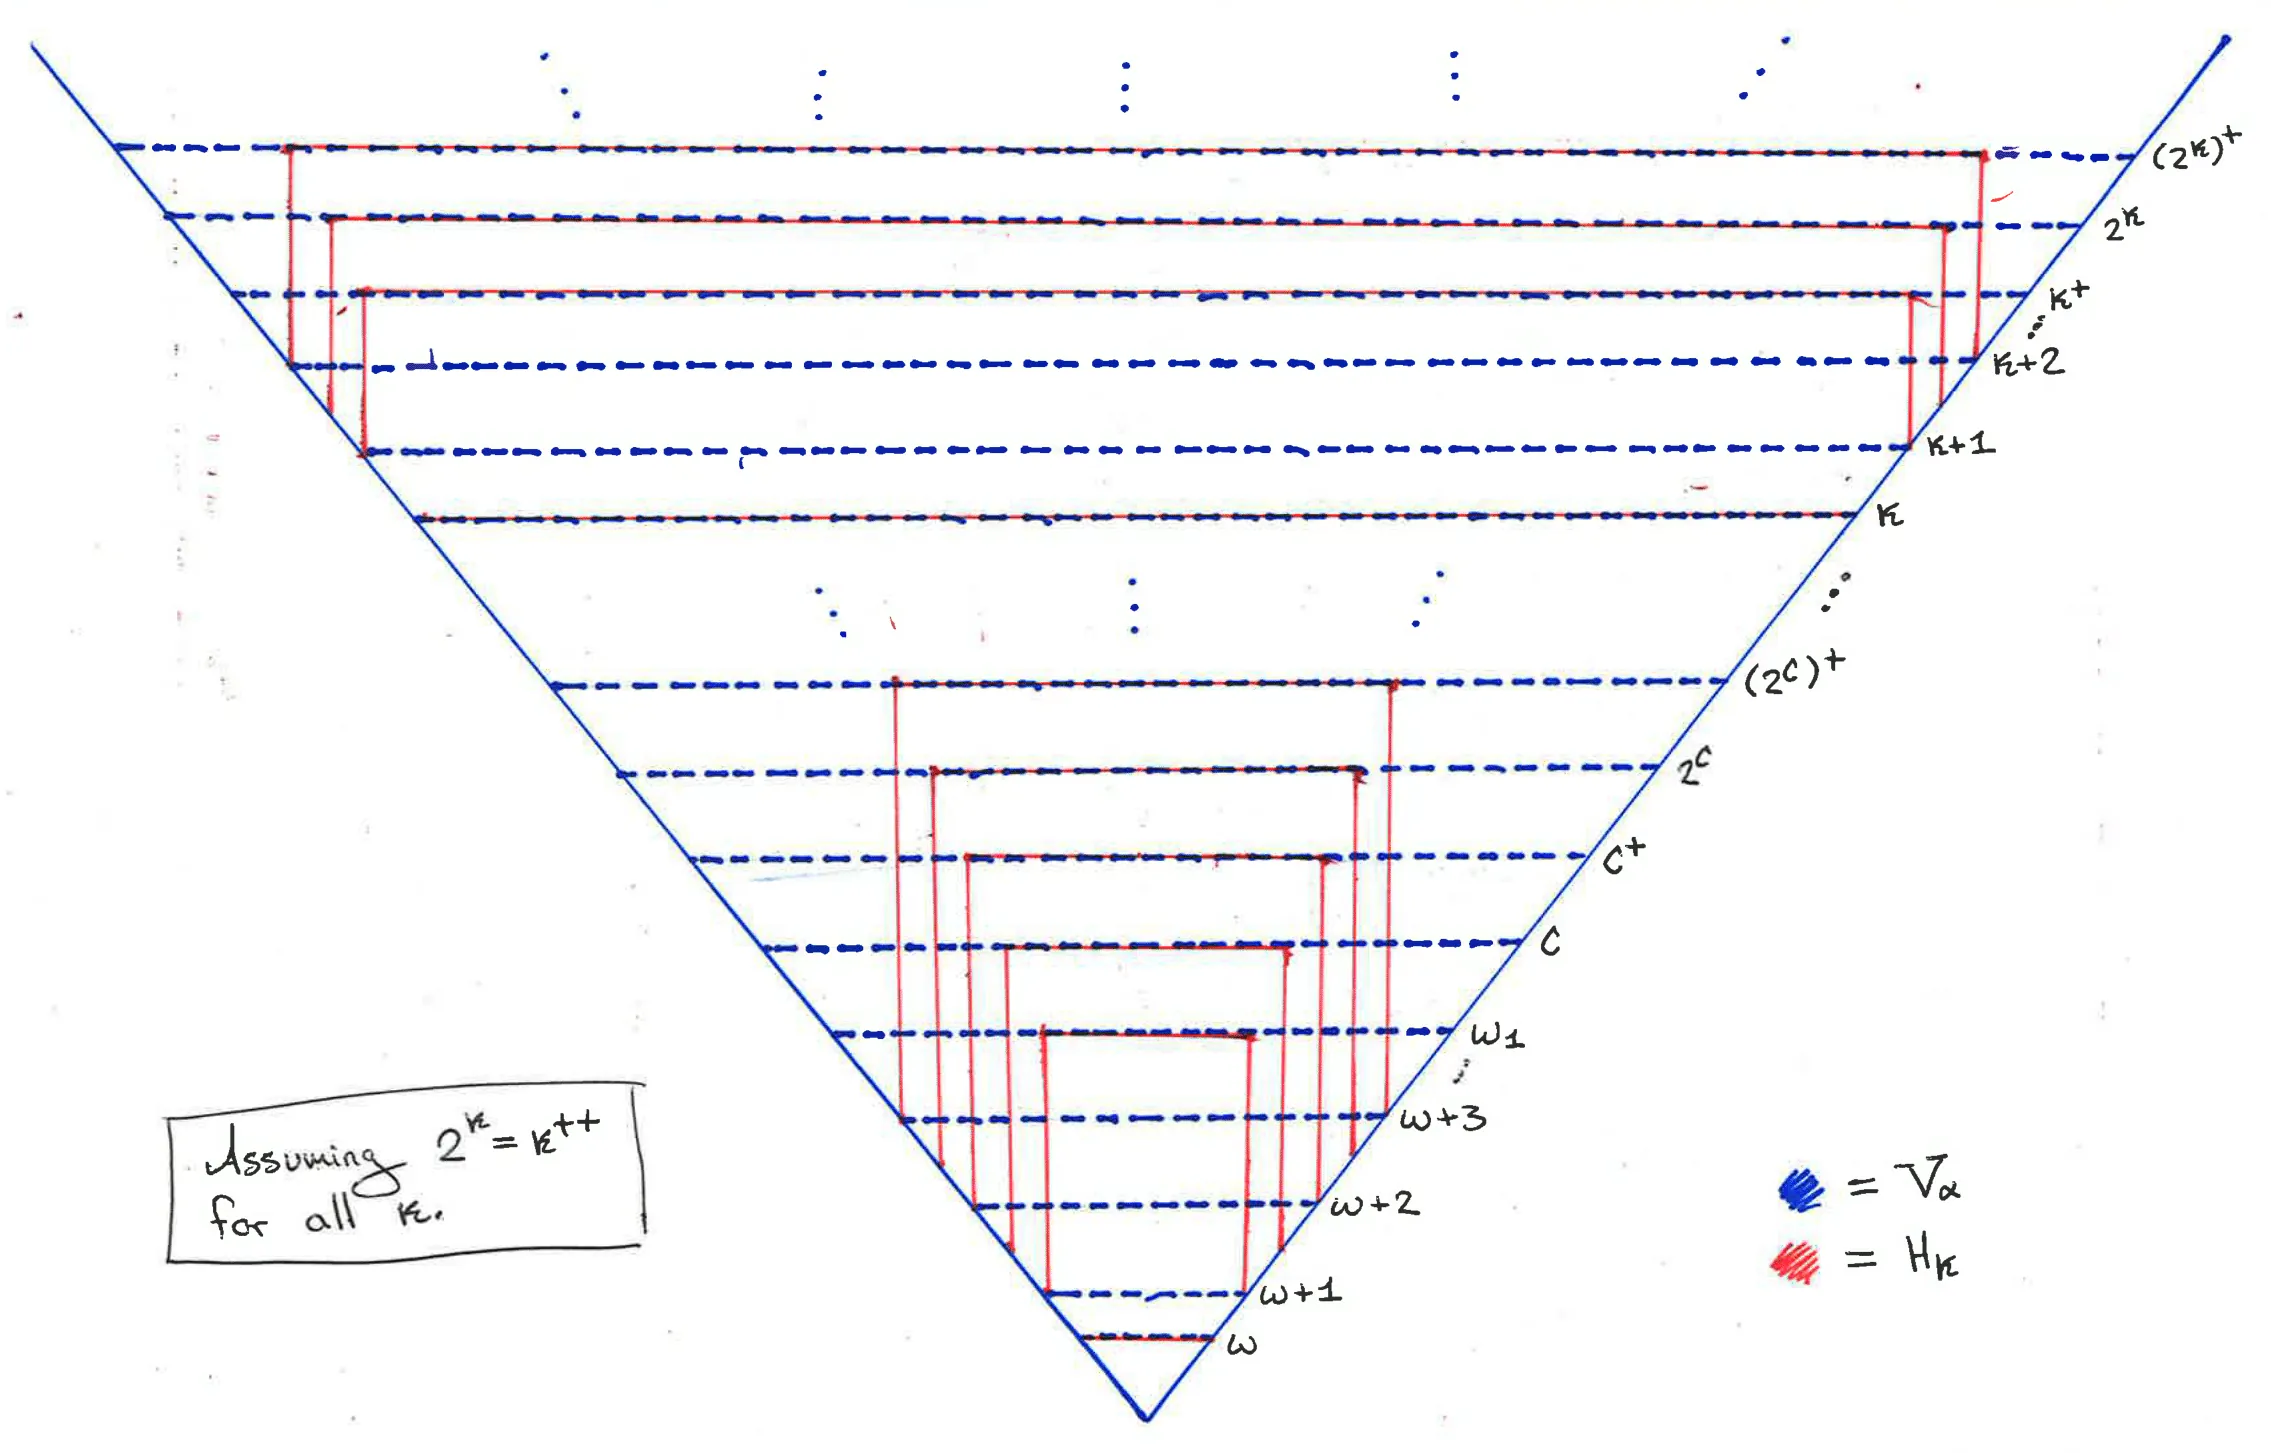 (2^κ)^+
2^κ
κ^+
κ+2
κ+1
κ
(2^c)^+
2^c
c^+
c
ω1
ω+3
ω+2
ω+1
ω
Assuming 2^κ = κ^++
for all κ.
= Vα
= Hκ